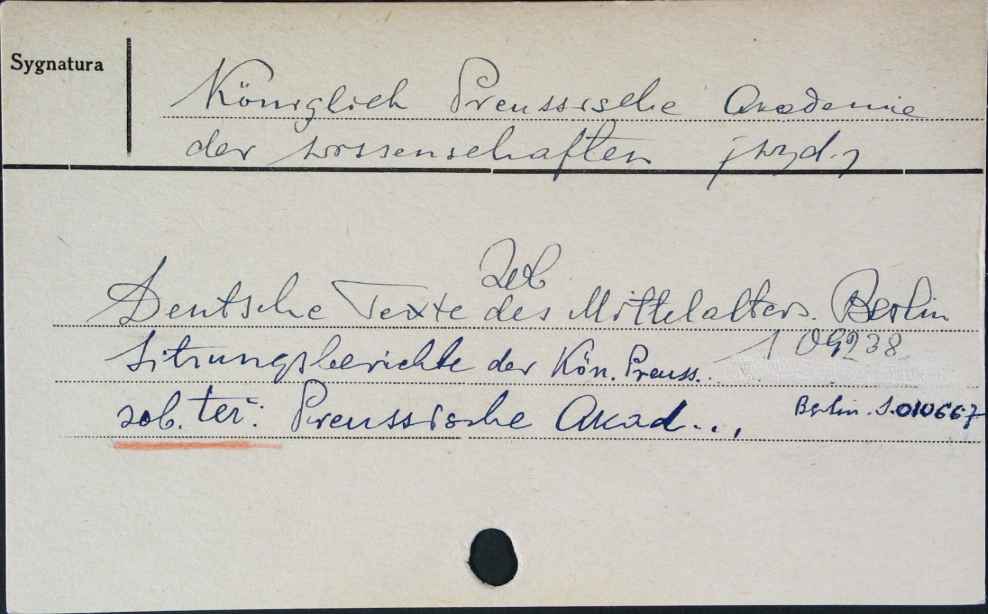 Sygnatura
Königlich Preussische Akademie
der Wissenschaften (wyd.)
Zob
Deutsche Texte des Mittelalters. Berlin
Sitzungsberichte der Kön. Preuss. 109238
zob. też: Preussische Akad...,
Berlin. S.010667